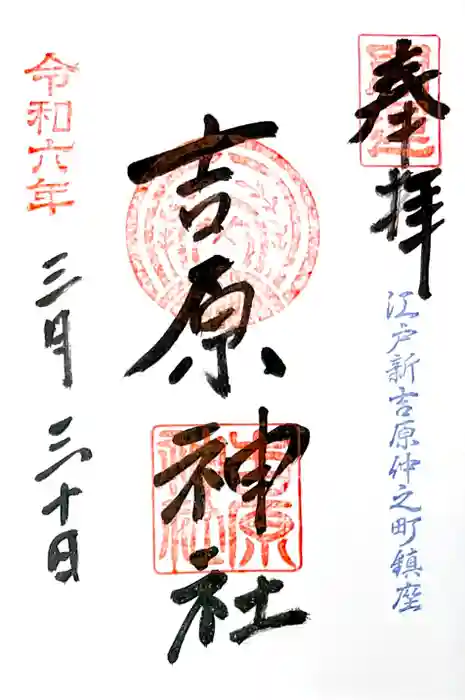 奉拝
江戸新吉原仲之町鎮座
吉原神社
令和六年
三月三十日
吉原神社